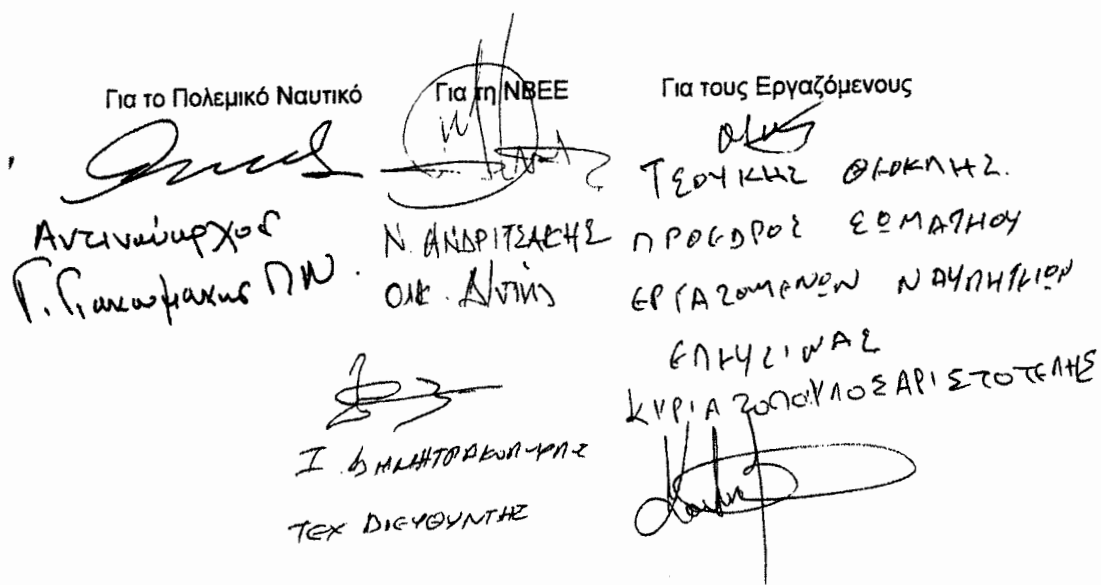 Για το Πολεμικό Ναυτικό
Αντιναύαρχος
Γ. Γιακουμακης ΠΝ.
Για τη ΝΒΕΕ
Ν. ΑΝΔΡΙΤΣΑΚΗΣ
ΟΙΚ. Δ/ντής
Ι. ΔΗΜΗΤΡΑΚΟΠΟΥΛΟΣ
ΤΕΧ ΔΙΕΥΘΥΝΤΗΣ
Για τους Εργαζόμενους
ΤΣΟΥΚΗΣ ΘΕΟΚΛΗΣ.
ΠΡΟΕΔΡΟΣ ΣΩΜΑΤΙΟΥ
ΕΡΓΑΖΟΜΕΝΩΝ ΝΑΥΠΗΓΕΙΩΝ
ΕΛΕΥΣΙΝΑΣ
ΚΥΡΙΑΖΟΠΟΥΛΟΣ ΑΡΙΣΤΟΤΕΛΗΣ